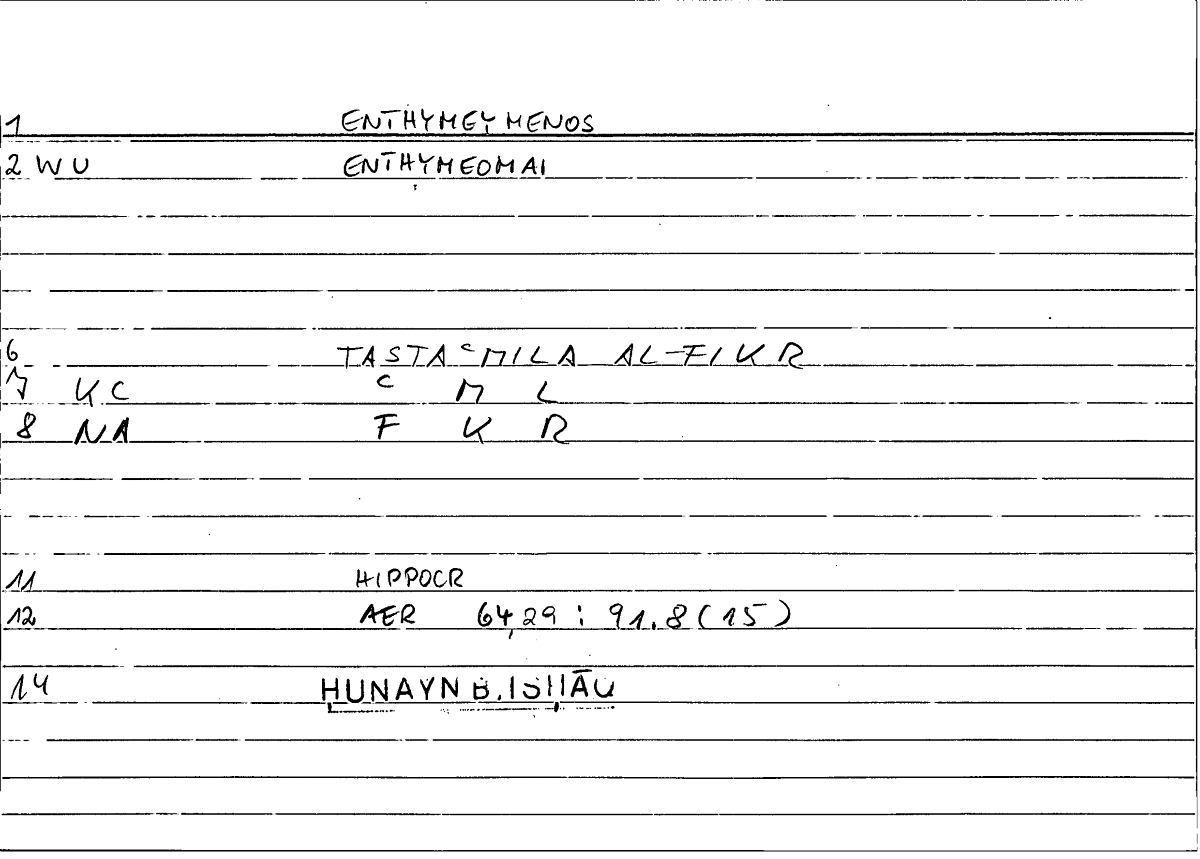 1 ENTHYMEYMENOS
2 WU ENTHYMEOMAI
6 TASTAᶜMILA AL-FIKR
7 KC ᶜ M L
8 NA F K R
11 HIPPOCR
12 AER 64,29 : 91.8 (15)
14 ḤUNAYN B. ISḤĀQ